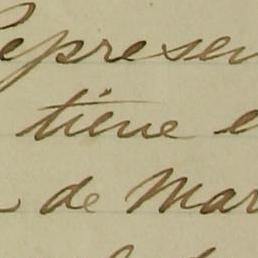 Represen
tiene e
de Mar